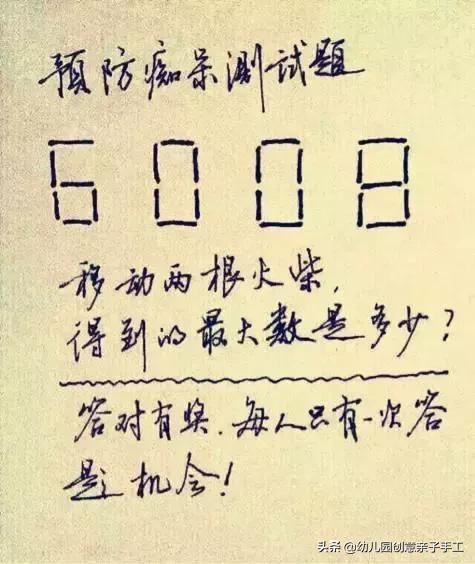 预防痴呆测试题
6008
移动两根火柴,
得到的最大数是多少?
答对有奖.每人只有一次答
题机会!
头条 @幼儿园创意亲子手工